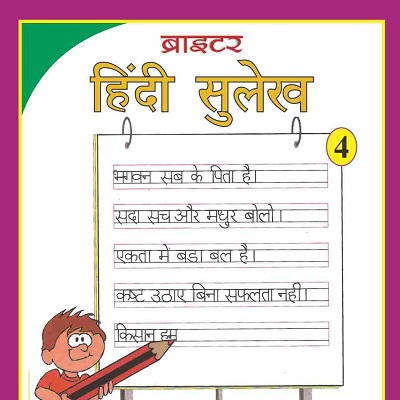 ब्राइटर
हिंदी सुलेख
4
भगवन सब के पिता है।
सदा सच और मधुर बोलो।
एकता में बडा बल है।
कष्ट उठाए बिना सफलता नही।
किसान हम